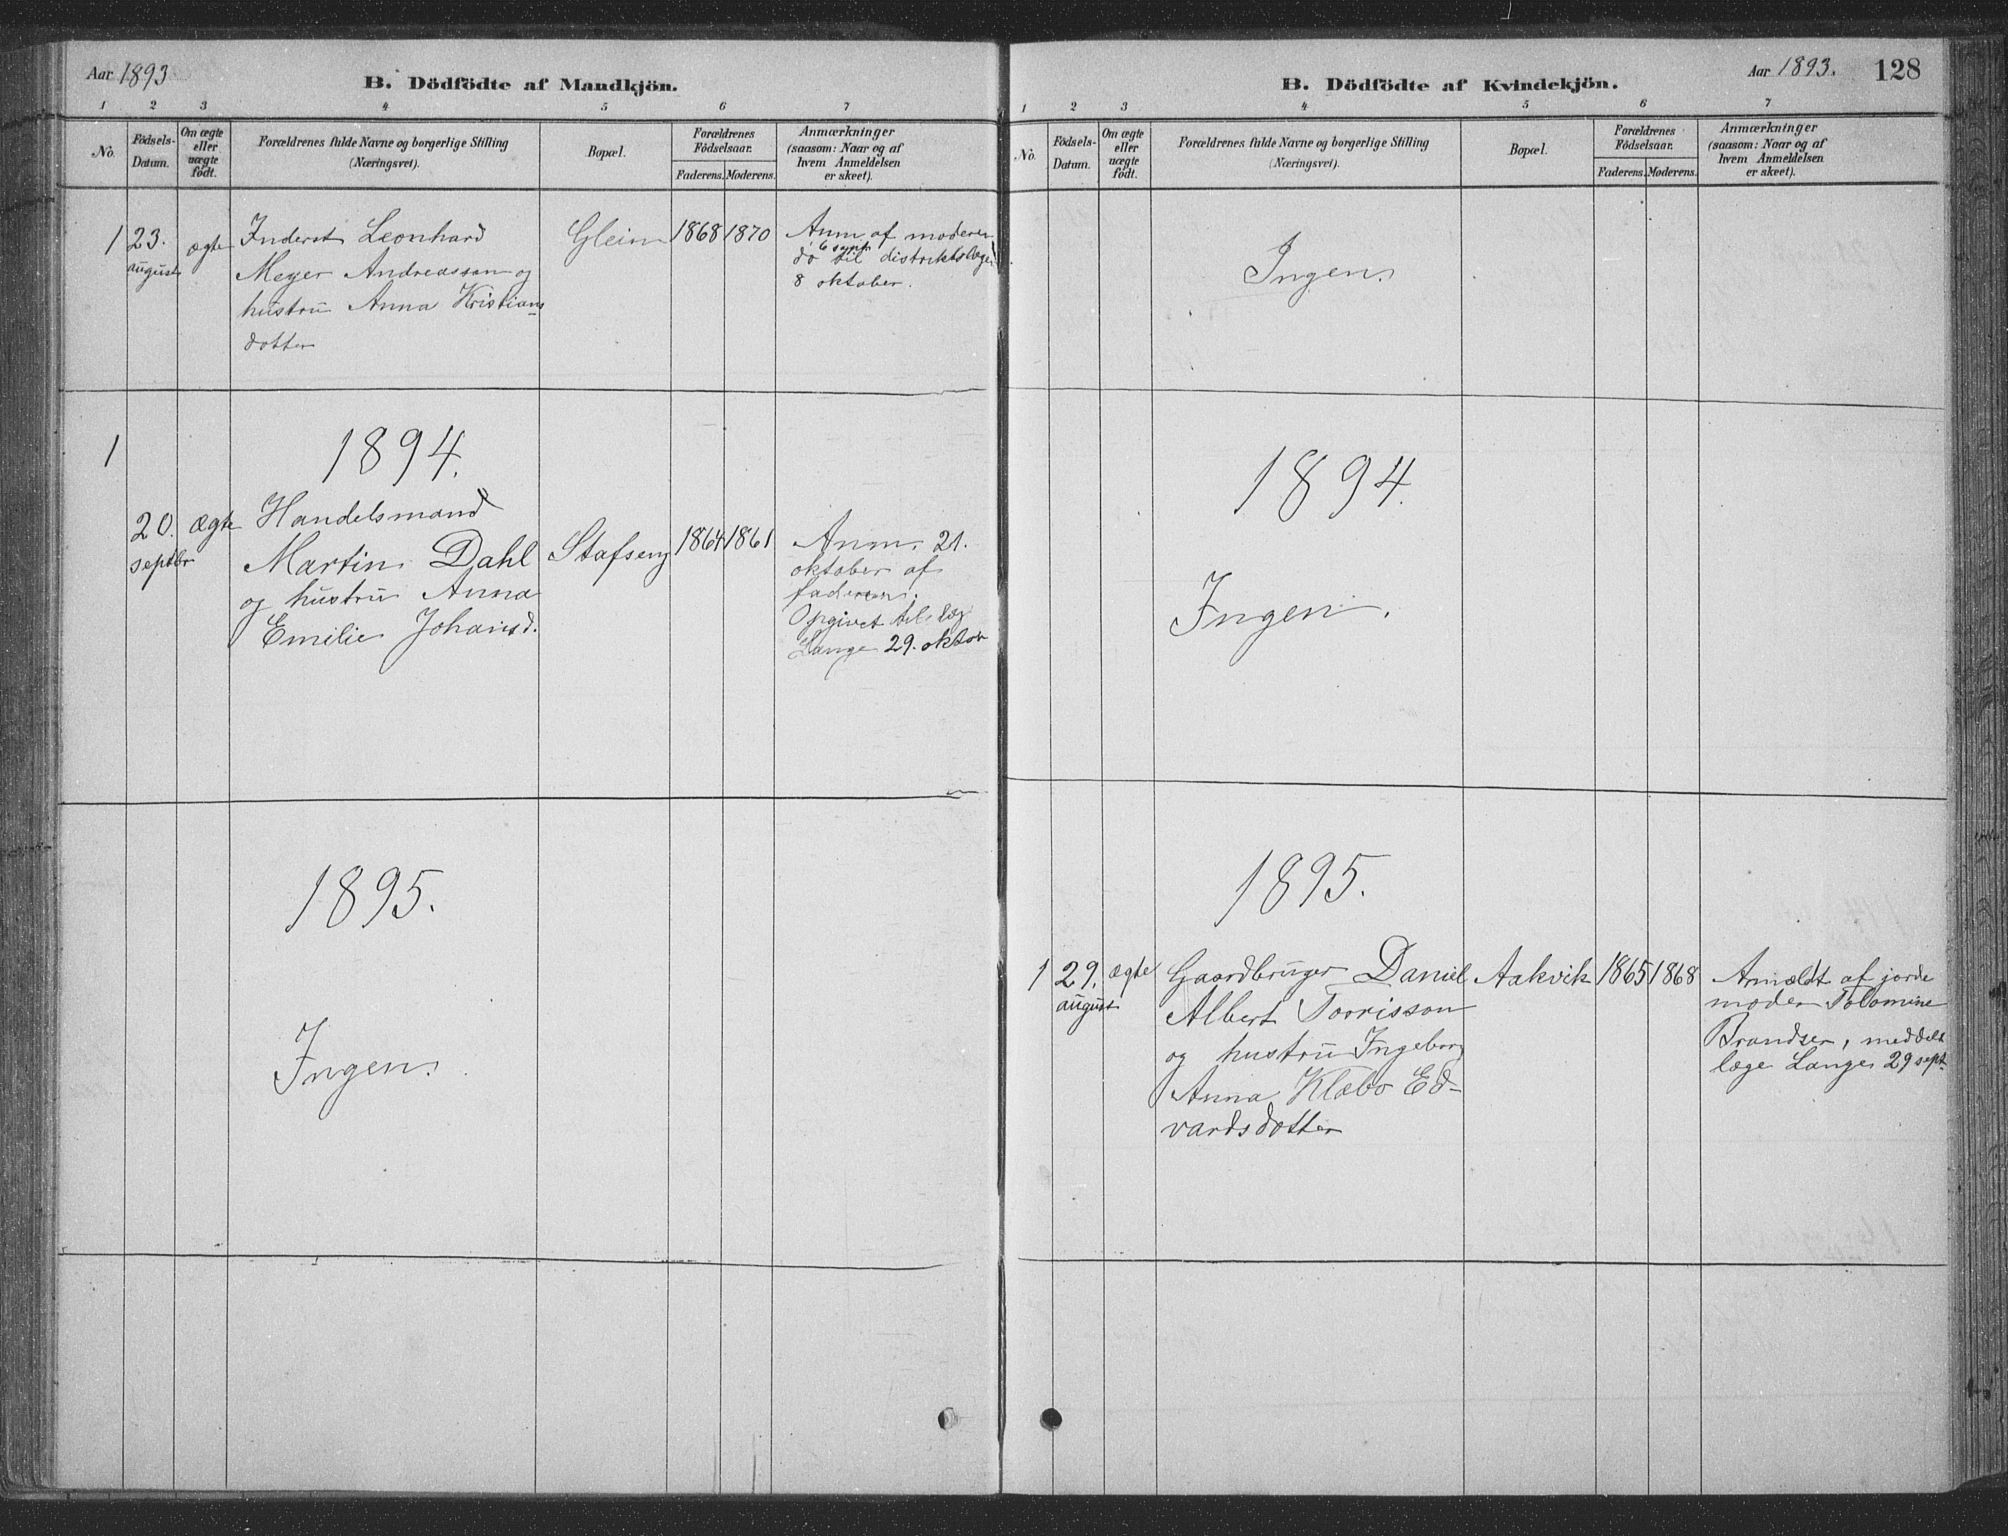 Aar 1893
B. Dödfödte af Mandkjön.
1 2 3 4 5 6 7
No.
Födsels-
Datum.
Om ægte
eller
uægte
födt.
Forældrenes fulde Navne og borgerlige Stilling
(Næringsvei).
Bopæl.
Forældrenes
Födselsaar.
Faderens. Moderens.
Anmærkninger
(saasom: Naar og af
hvem Anmeldelsen
er skeet).
1 23. august ægte
Inderst Leonhard
Meyer Andreassøn og
hustru Anna Kristians
dotter
Glein 1868 1870
Anm af moderen
6 sept
do til distriktslæge
8 oktober.
1
1894.
20. septbr ægte
Handelsmand
Martin Dahl
og hustru Anna
Emilie Johansd.
Stafseng 1864 1861
Anm. 21.
oktober af
faderen.
Opgivet til læg
Lange 29. oktor
1895.
Ingen.
Aar 1893. 128
B. Dödfödte af Kvindekjön.
1 2 3 4 5 6 7
No.
Födsels-
Datum.
Om ægte
eller
uægte
födt.
Forældrenes fulde Navne og borgerlige Stilling
(Næringsvei).
Bopæl.
Forældrenes
Födselsaar.
Faderens. Moderens.
Anmærkninger
(saasom: Naar og af
hvem Anmeldelsen
er skeet).
Ingen.
1894.
Ingen.
1895.
1 29. august ægte
Gaardbruger Daniel
Albert Torrissøn
og hustru Ingeborg
Anna Klæbo Ed-
vardsdotter
Aakvik 1865 1868
Anmeldt af jorde
moder Tolomine
Brandser, meddelt
læge Lange 29 sept.